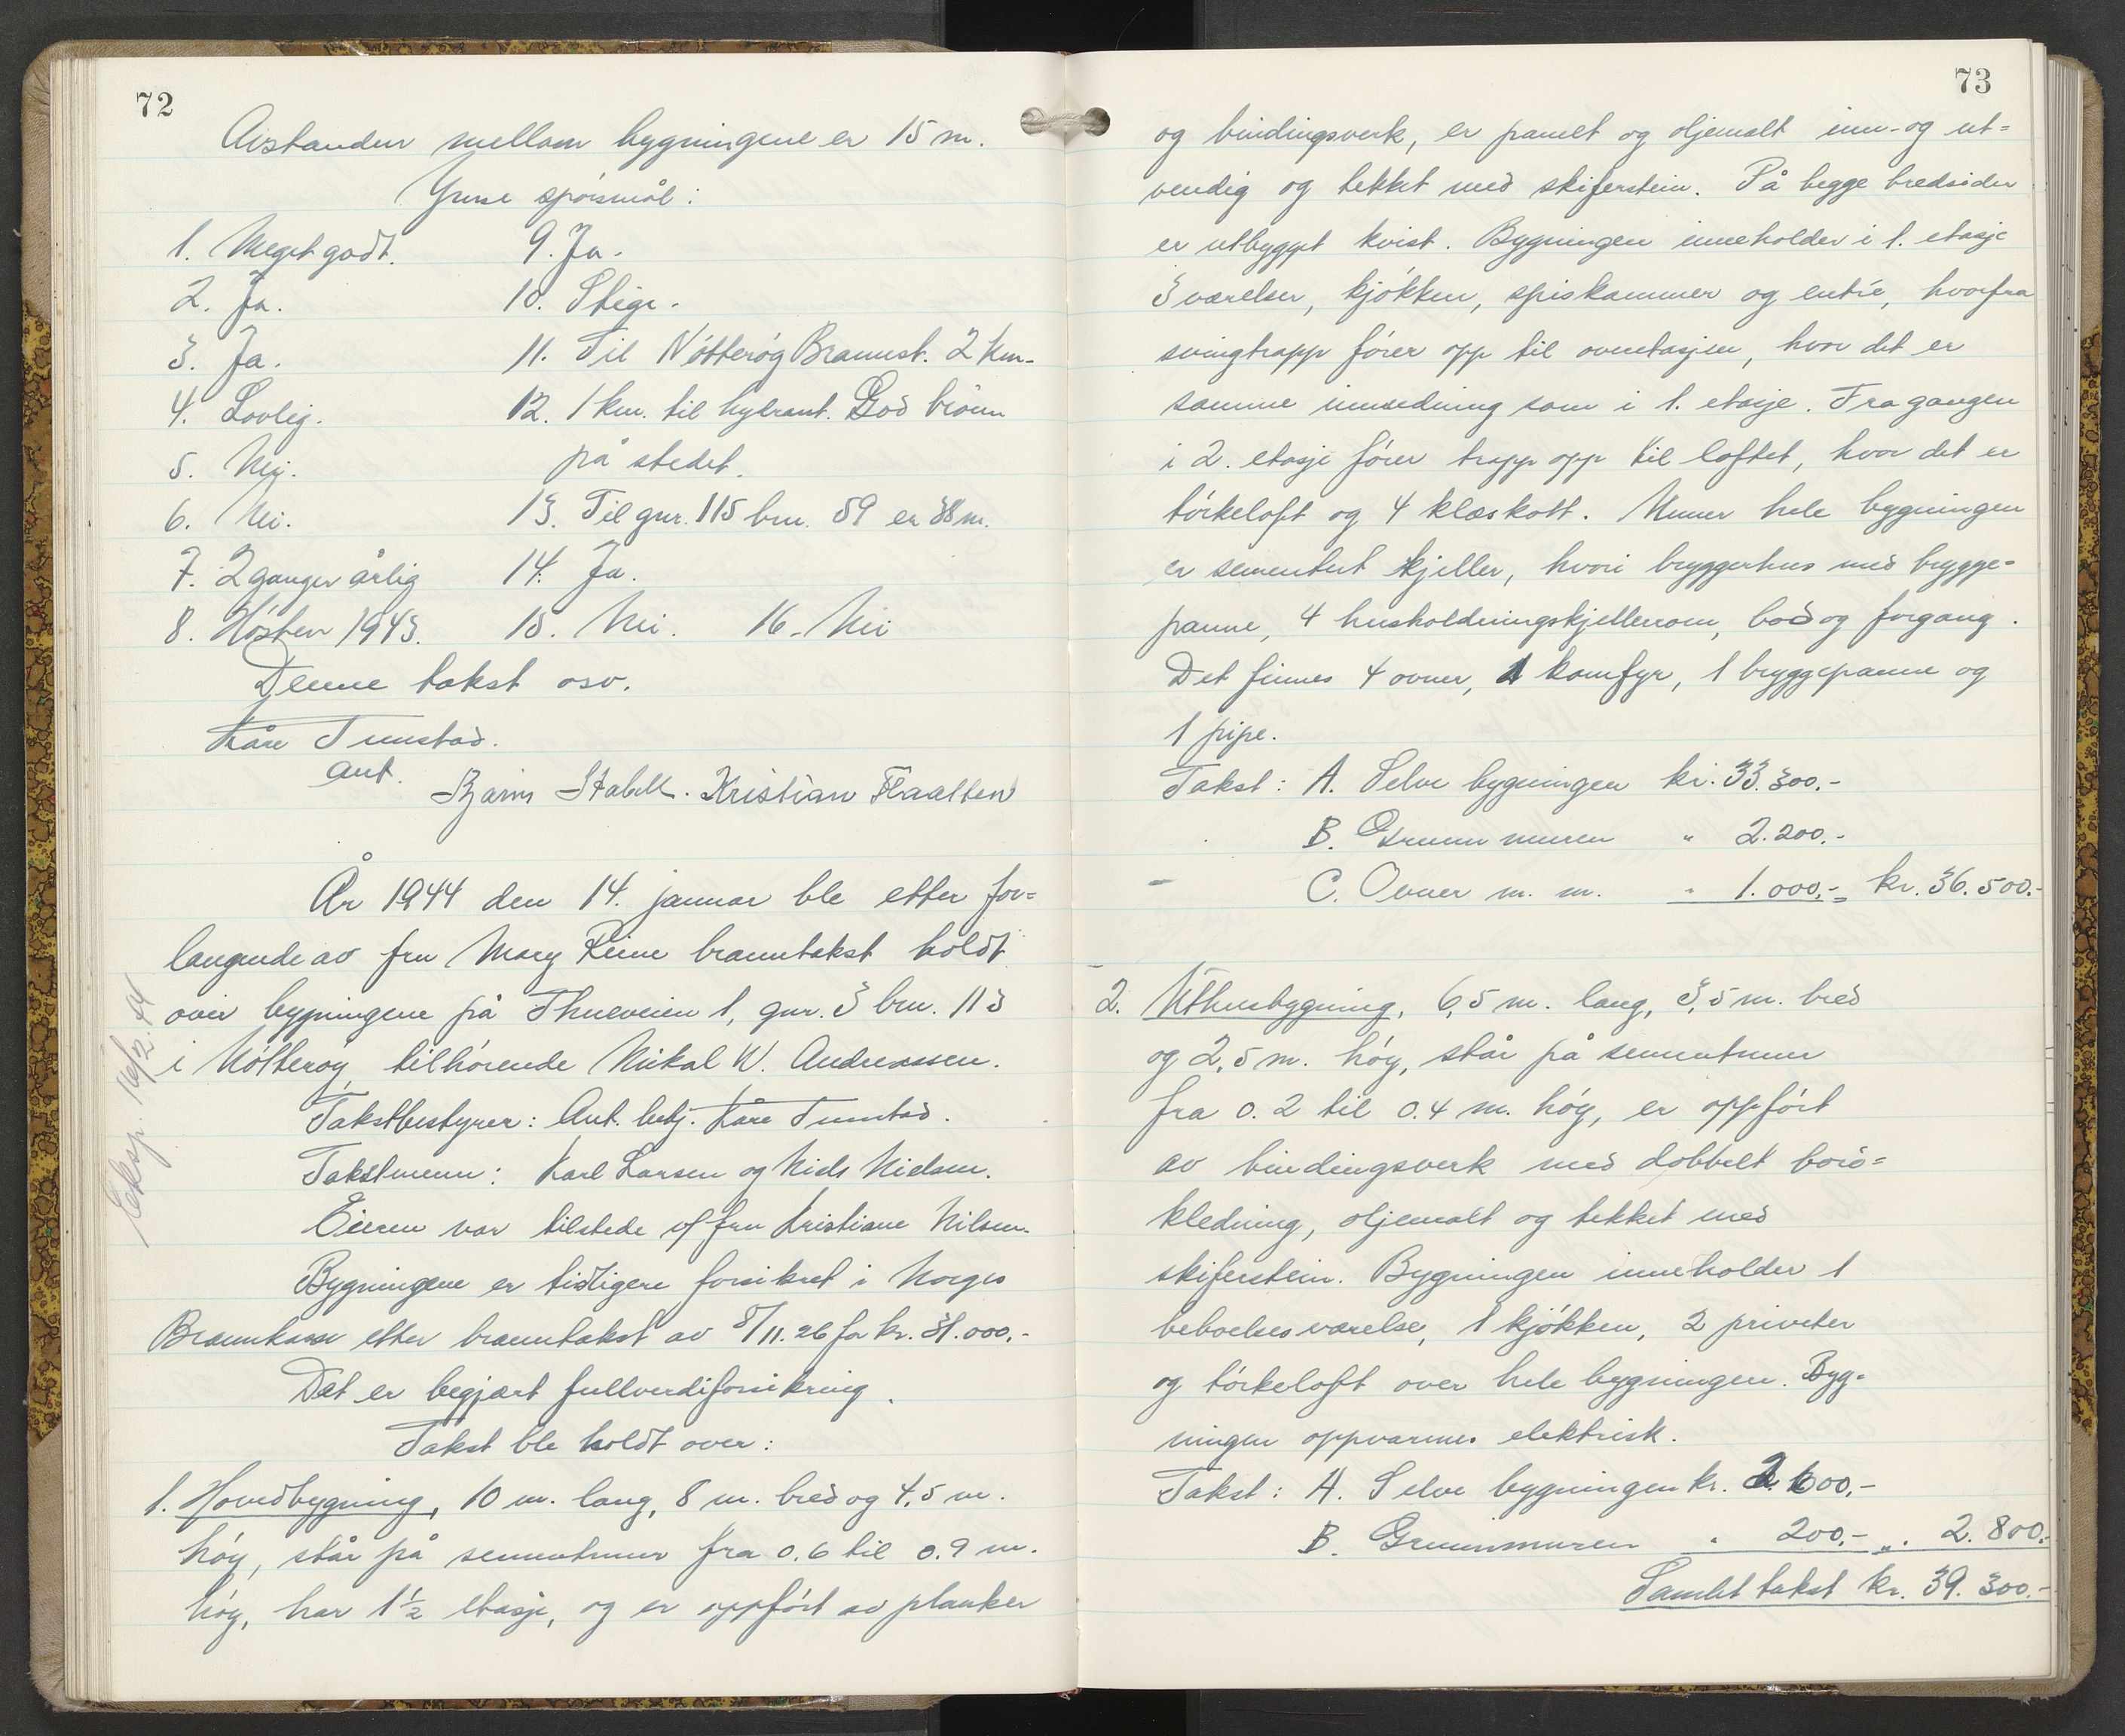 72
Avstanden mellom bygningene er 15 m.
Ymse spörsmål:
1. Meget godt.
2. Ja.
3. Ja.
4. Lovlig.
5. Nei.
6. Nei.
7. 2 ganger årlig
8. Hösten 1943.
9. Ja.
10. Stige.
11. Til Nötteröy Brannst. 2 km.
12. 1 km. til hydrant. God brönn
på stedet.
13. Til gnr. 115 bnr. 59 er 38 m.
14. Ja.
15. Nei. 16. Nei
Denne takst osv.
Kåre Tunstad.
Ant.
Bjarne Stabell. Kristian Flaatten
År 1944 den 14. januar ble etter for=
langende av fru Mary Reine branntakst holdt
over bygningene på Thueveien 1, gnr. 3 bnr. 113
i Nötteröy tilhörende Mikal W. Andreassen.
Takstbestyrer: Ant. betj. Kåre Tunstad.
Takstmenn: Karl Larsen og Niels Nielsen.
Eieren var tilstede v/ fru Kristiane Nilsen.
Bygningene er tidligere forsikret i Norges
Brannkasse etter branntakst av 5/11.26 for kr. 31.000.-
Det er begjært fullverdiforsikring.
Takst ble holdt over:
1. Hovedbygning, 10 m. lang, 8 m. bred og 4,5 m.
höy, står på sementmur fra 0.6 til 0.9 m.
höy, har 1½ etasje, og er oppfört av planker
Eksp. 16/2.44
73
og bindingsverk, er panelt og oljemalt inn- og ut=
vendig og tekket med skiferstein. På begge bredsider
er utbygget kvist. Bygningen inneholder i 1. etasje
3 værelser, kjökken, spiskammer og entré, hvorfra
svingtrapp förer opp til overetasjen, hvor det er
samme innredning som i 1. etasje. Fra gangen
i 2. etasje förer trapp opp til loftet, hvor det er
törkeloft og 4 klæskott. Under hele bygningen
er sementert kjeller, hvori bryggerhus med brygge=
panne, 4 husholdningskjellerrom, bod og forgang.
Det finnes 4 ovner, 1 komfyr, 1 bryggepanne og
1 pipe.
Takst: A. Selve bygningen kr. 33.300.-
B. Grunnmuren " 2.200.-
C. Ovner m. m. " 1.000.- = kr. 36.500.-
2. Uthusbygning, 6,5 m. lang, 3,5 m. bred
og 2,5 m. höy, står på sementmur
fra 0.2 til 0.4 m. höy, er oppfört
av bindingsverk med dobbelt bord=
kledning, oljemalt og tekket med
skiferstein. Bygningen inneholder 1
beboelsesværelse, 1 kjökken, 2 priveter
og törkeloft over hele bygningen. Byg=
ningen oppvarmes elektrisk.
Takst: A. Selve bygningen kr. 2.600.-
B. Grunnmuren " 200.- " 2.800.-
Samlet takst kr. 39.300.-